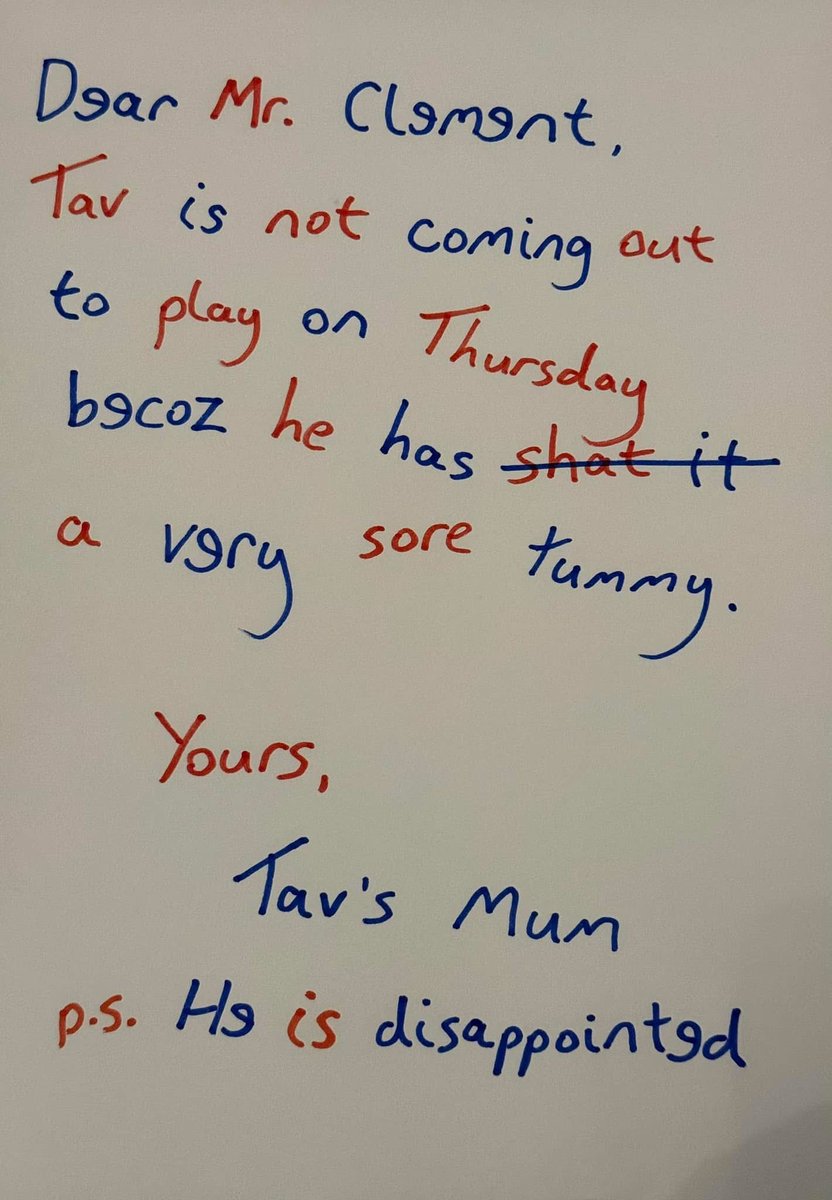 Dear Mr. Clement,
Tav is not coming out
to play on Thursday
becoz he has shat it
a very sore tummy.
Yours,
Tav's Mum
p.s. He is disappointed